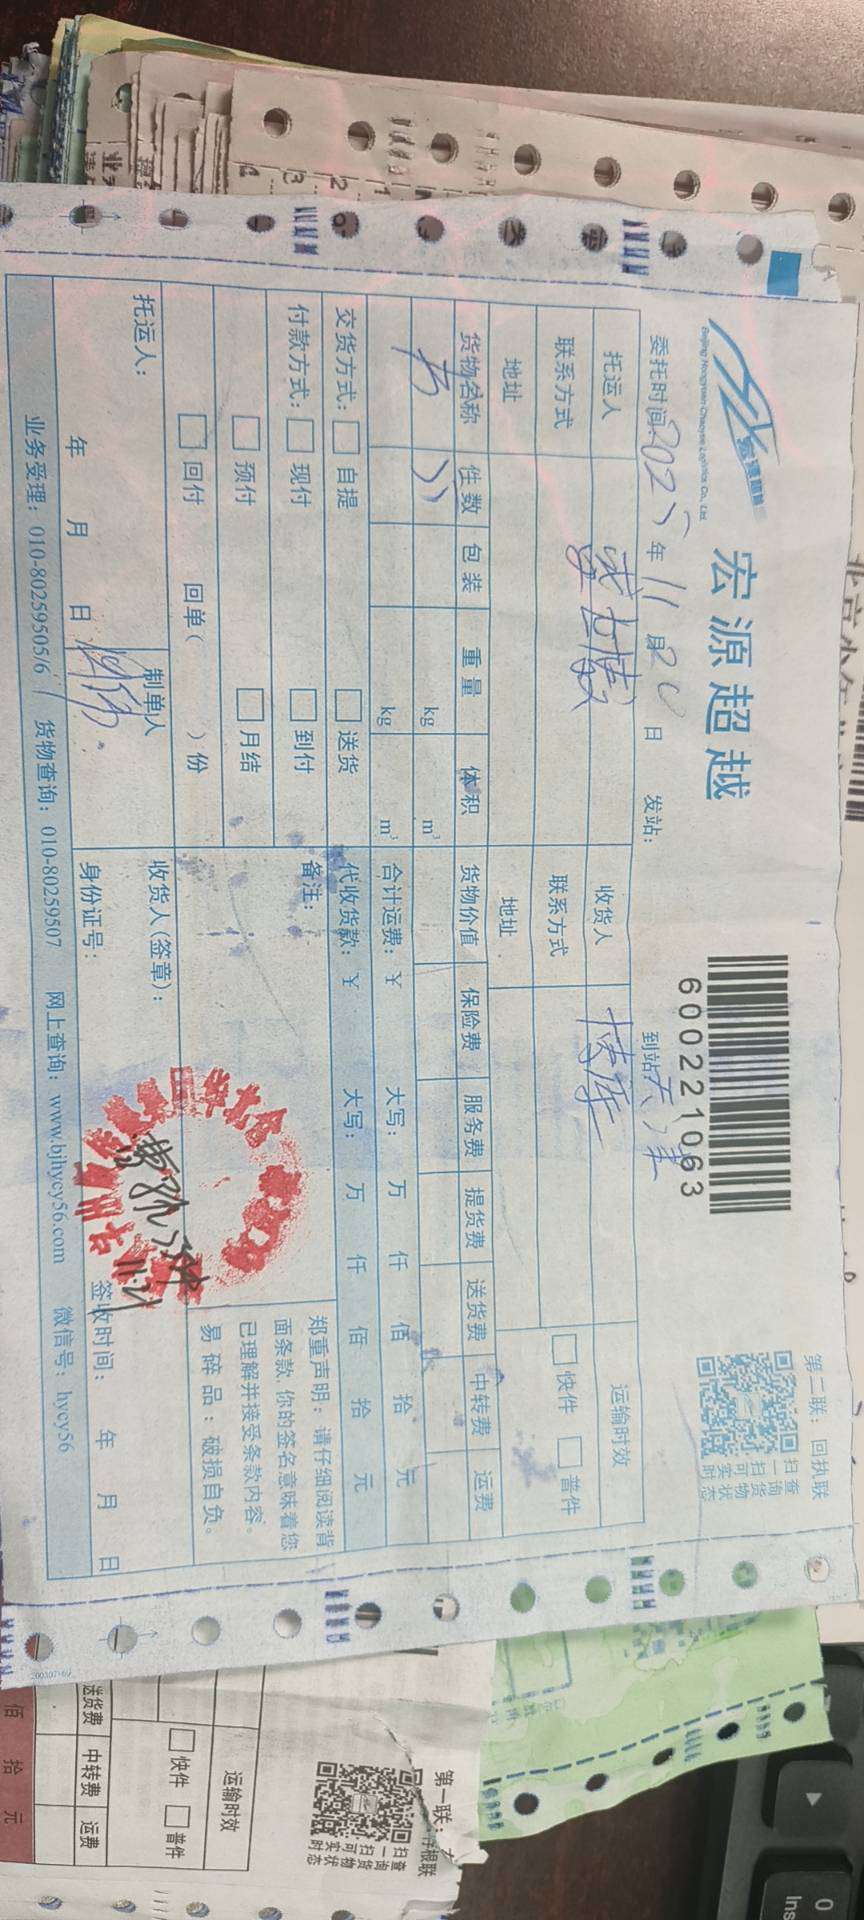 宏源超越
Beijing Hongyuan Chaoyue Logistics Co., Ltd.
600221063
第二联：回执联
扫一扫可实时
查询货物状态
委托时间：2025年11月20日 发站： 到站：天津
托运人 收货人 运输时效
联系方式 联系方式 快件 普件
地址 地址
货物名称 件数 包装 重量 体积 货物价值 保险费 服务费 提货费 送货费 中转费 运费
书 kg m³
kg m³ 合计运费：¥ 大写： 万 仟 佰 拾 元
交货方式： 自提 送货 代收货款：¥ 大写： 万 仟 佰 拾 元
付款方式： 现付 到付 备注：
预付 月结
回付 回单（ ）份
郑重声明：请仔细阅读背
面条款 你的签名意味着您
已理解并接受条款内容。
易碎品：破损自负。
托运人： 制单人 收货人（签章）：
11.21
年 月 日 身份证号： 签收时间： 年 月 日
业务受理：010-80259505/6 货物查询：010-80259507 网上查询：www.bjhycy56.com 微信号：hycy56
第一联：
扫一扫可实时
查询货物状态
运输时效
快件 普件
送货费 中转费 运费
佰 拾 元
0
Ins